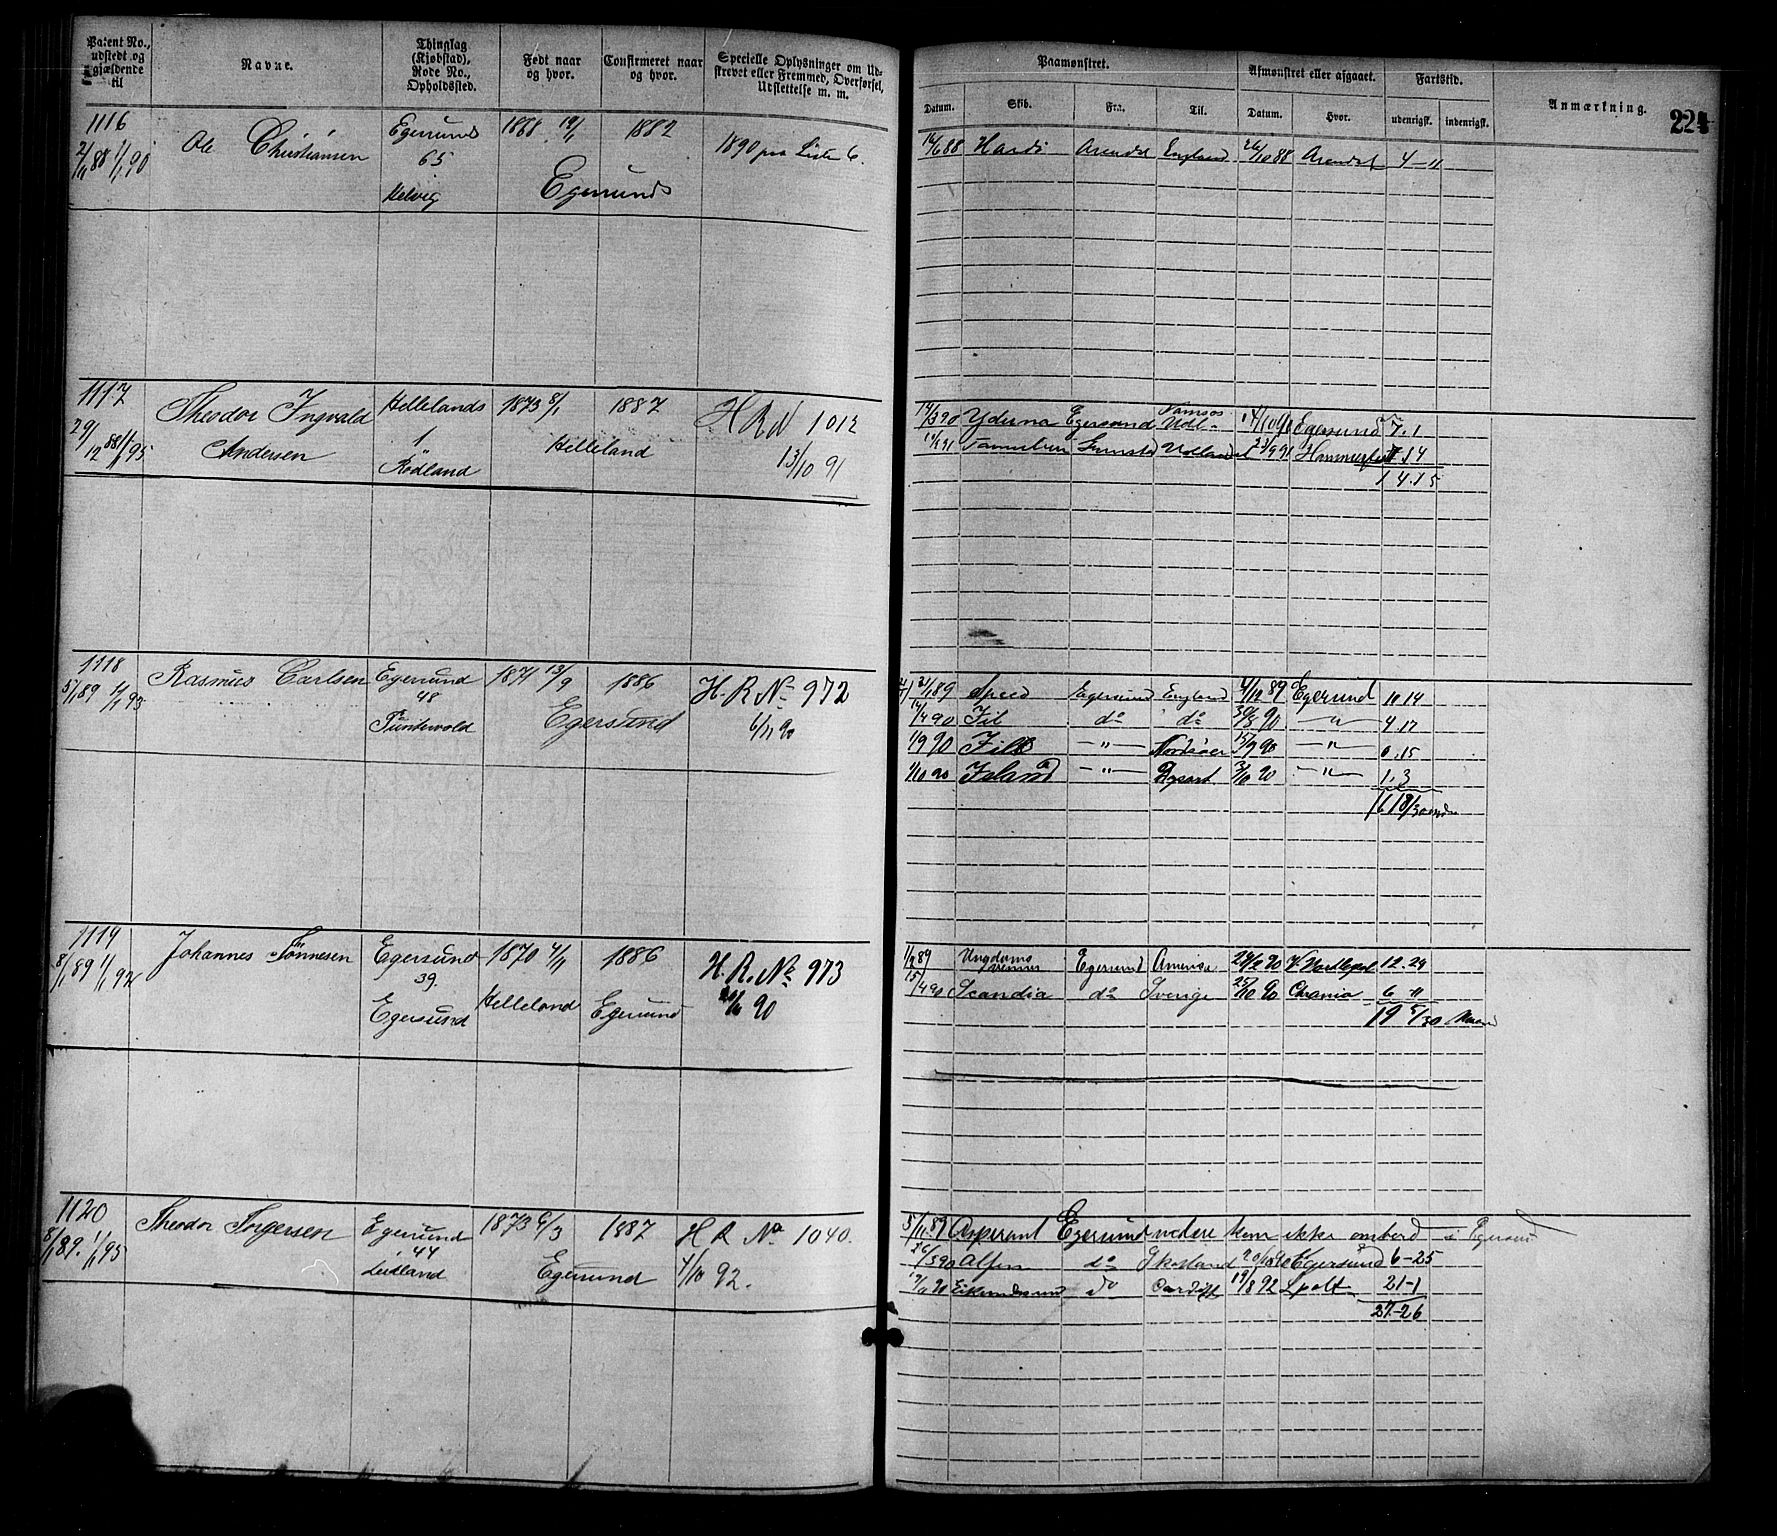 Patent No., udstedt og gjældende til
Navne.
Thinglag (Kjøbstad), Rode No., Opholdssted.
Født naar og hvor.
Confirmeret naar og hvor.
Specielle Oplysninger om Udskrevet eller Fremmed, Overførsel, Udslettelse m. m.
Paamønstret.
Afmønstret eller afgaaet.
Fartstid.
Anmærkning.
224
Datum.
Skib.
Fra.
Til.
Datum.
Hvor.
udenrigsk.
indenrigsk.
1116
2/11 88 1/1 90
Ole Christiansen
Egersund
65
Helvig
1868 19/1
1882
Egersund
1890 paa Liste 6.
14/6 88 Hardi Arendal England 26/10 88 Arendal 4 - 11
1117
29/12 88 1/1 95
Theodor Ingvald
Andersen
Hellelands
1
Rødland
1873 8/1
1887
Helleland
H R N 1012
13/10 91
14/3 90 Yderna Egersund Namsos Udl. 14/10 90 Egersund 7. 1
Udland 23/9 91 Hammerfest 7 14
14.15
1118
5/1 89 1/1 93
Rasmus Carlsen
Egersund
48
Puntervold
1871 13/9
1886
Egersund
H. R. No 972
6/11 90
21/1 89 Speed Egersund England 4/12 89 Egersund 10 14
14/4 90 Fil do do 30/8 90 - " - 4. 17
1/9 90 Fil - " - Nordsøen 15/9 90 - " - 0. 15
1/10 90 Island - " - Dysart 3/11 90 - " - 1. 3
16 18/30
1119
8/1 89 1/1 92
Johannes Tønnesen
Egersund
39.
Egersund
1870 4/11
Helleland
1886
Egersund
H. R. No 973
6/11 90
1/2 89 Ungdoms Egersund Amerika 28/2 90 V. Hartlepol 12. 29
15/4 90 Scandia do Sverige 25/10 90 Chrania 6 11
19 5/30
1120
8/1 89. 1/1 95
Theodor Torgersen
Egersund
44
Leidland
1873 6/3
1887
Egersund
H R No 1040.
4/10 92.
5/11 89 Asperant Egersund vedere kom ikke ombord i Egersund
26/3 90 Alfen do Skotland 20/10 90 Egersund 6 - 25
17/11 90 do Cardiff 19/8 92 Lpolt 21 - 1
27 - 26